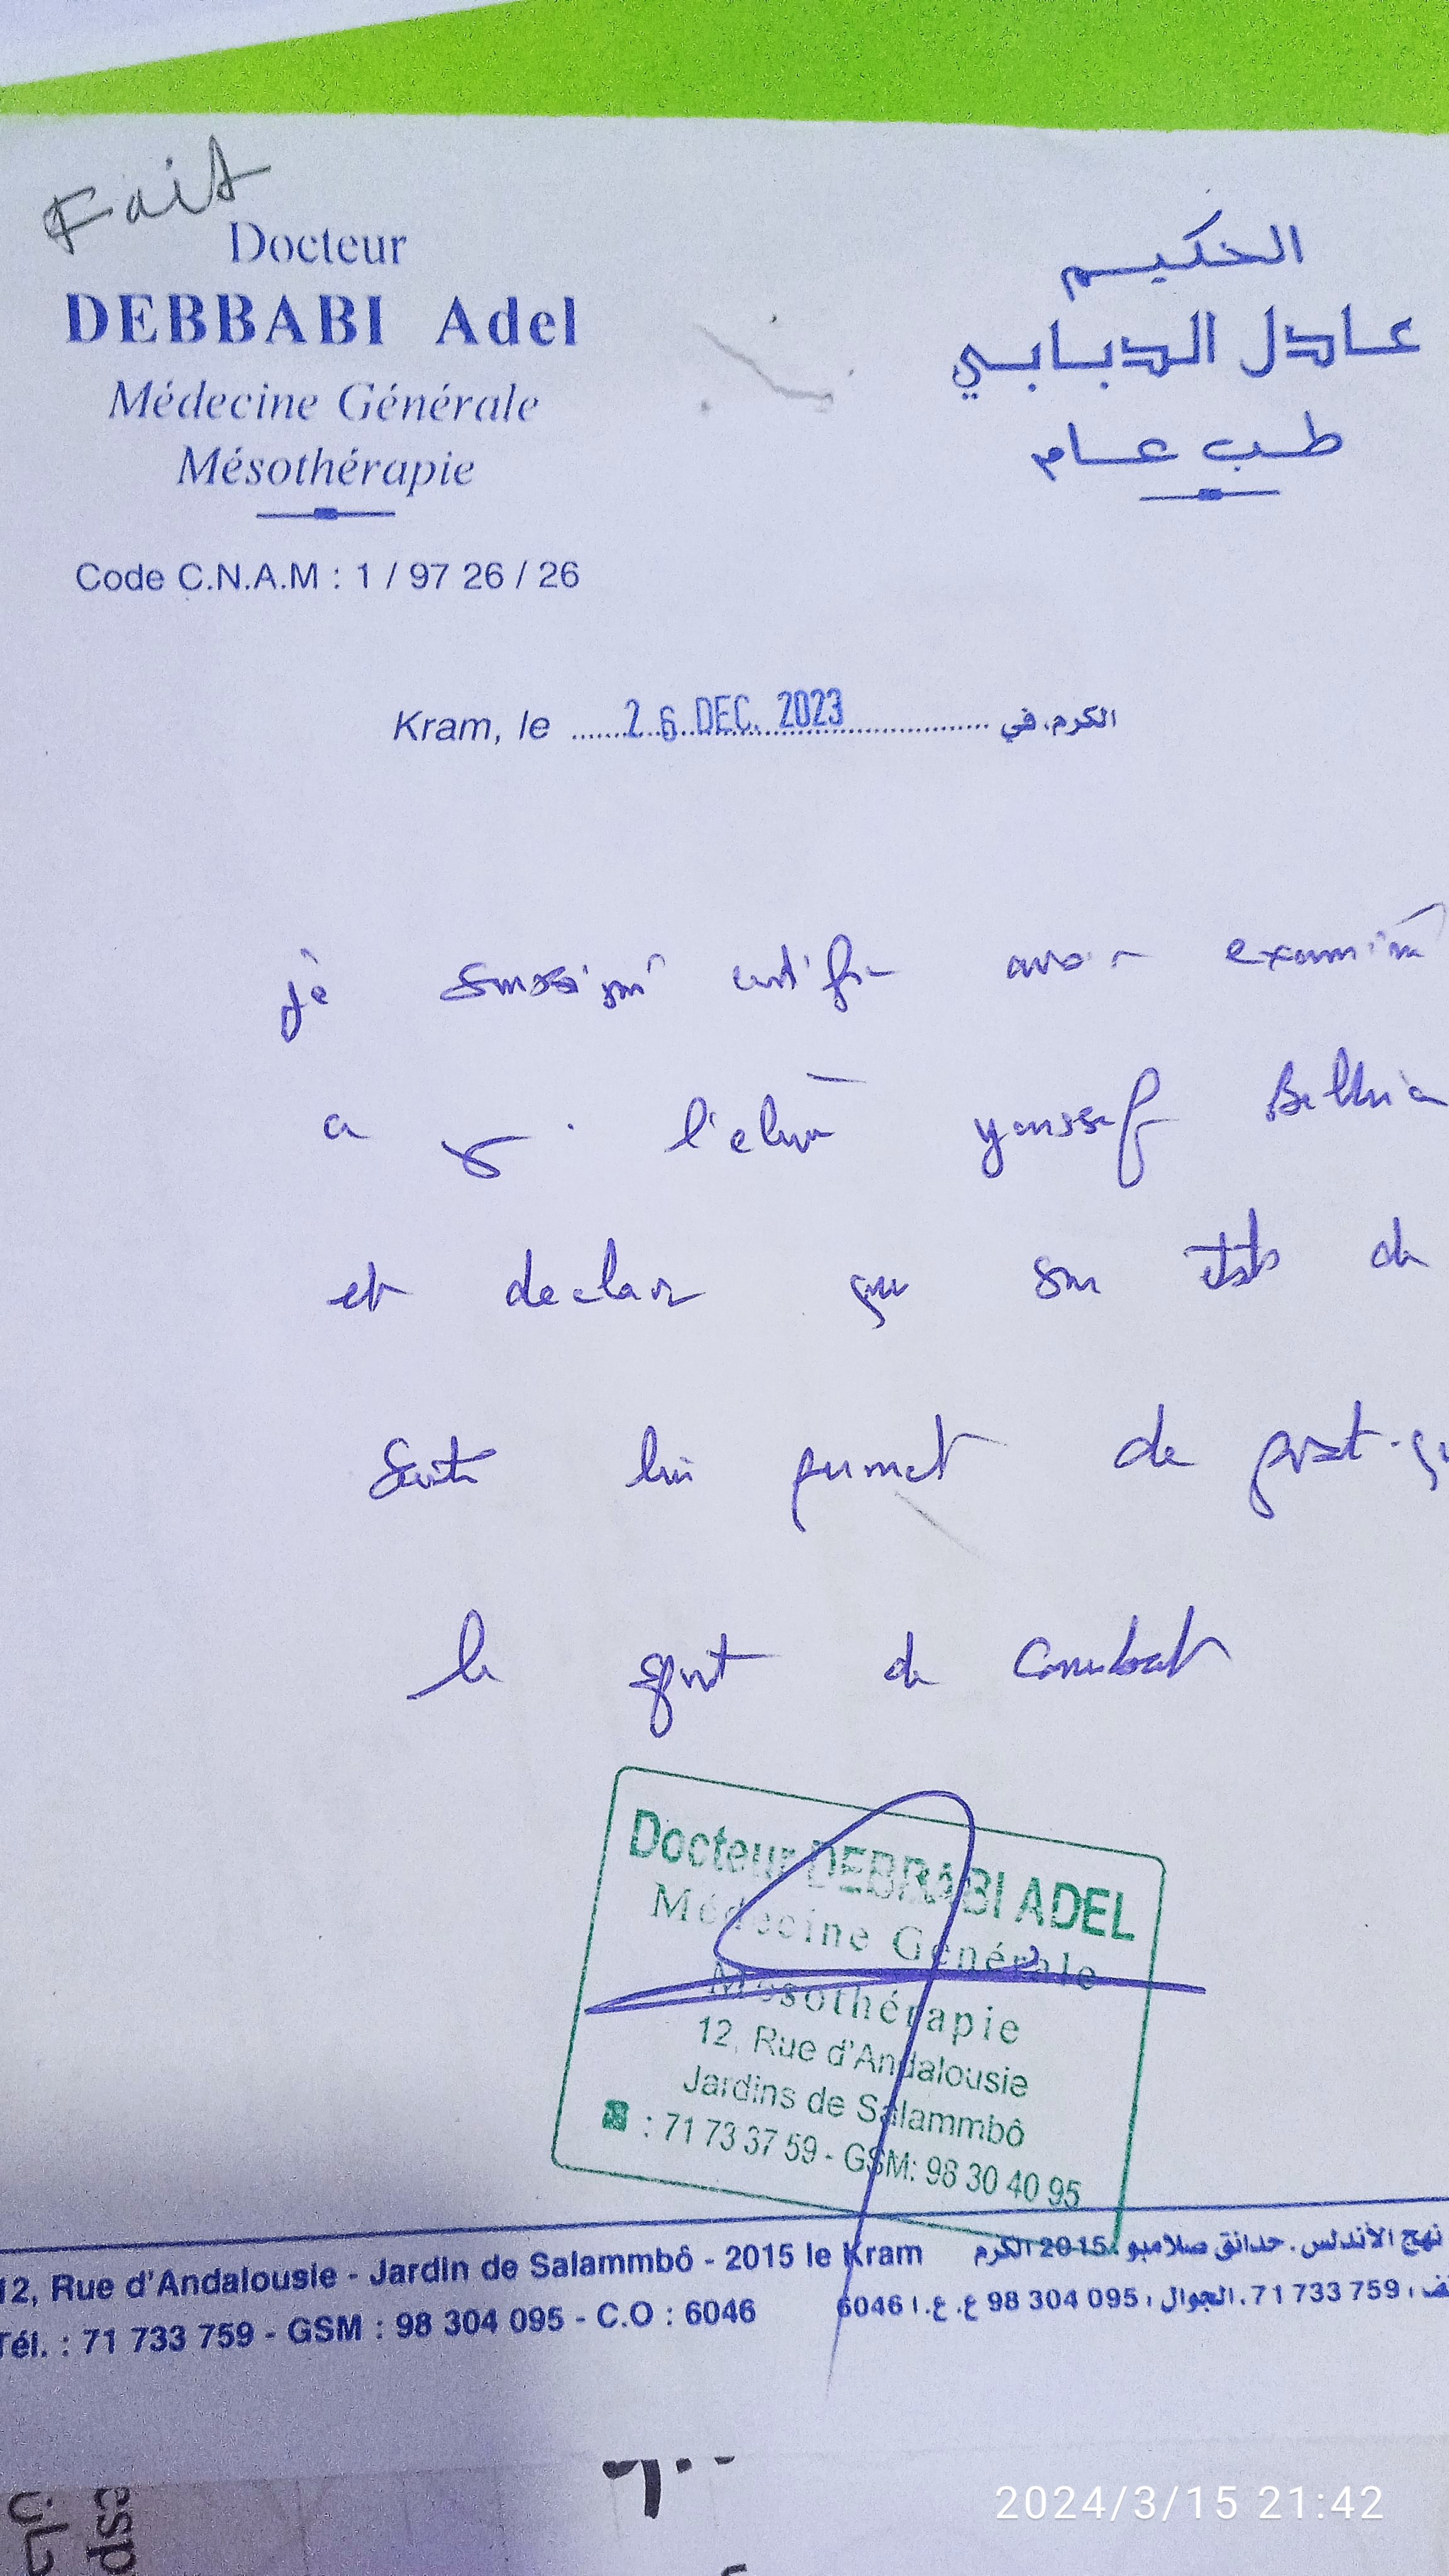 Fait
Docteur
DEBBABI Adel
Médecine Générale
Mésothérapie
Code C.N.A.M : 1 / 97 26 / 26
الحكيم
عادل الدبابي
طب عام
Kram, le 26 DEC. 2023 الكرم، في
je soussigné certifie avoir examiné
a l'élève youssef
et declare que son etat de
santé lui permet de
le sport de combat
Docteur DEBBABI ADEL
Médecine Générale
Mésothérapie
12, Rue d'Andalousie
Jardins de Salammbô
: 71 73 37 59 - GSM: 98 30 40 95
12, Rue d'Andalousie - Jardin de Salammbô - 2015 le Kram
نهج الأندلس. حدائق صلامبو. 2015 الكرم
Tél. : 71 733 759 - GSM : 98 304 095 - C.O : 6046
71 733 759. الجوال : 98 304 095 ع. ع. : 6046
2024/3/15 21:42